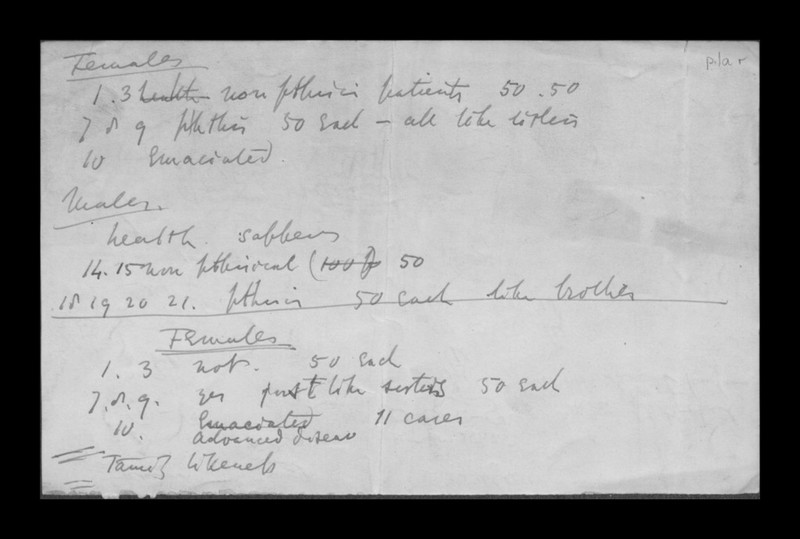 Females
1. 3 health non pthisis patients 50. 50
7 8 9 phthis 50 each – all like sisters
10 Emaciated.
Males.
health sappers
14. 15 non pthisical (100 50
18 19 20 21. pthisis 50 each like brother
Females
1. 3 not. 50 each
7. 8. 9. yes just like sisters 50 each
10. Emaciated 11 cases
advanced disease
Family likeness